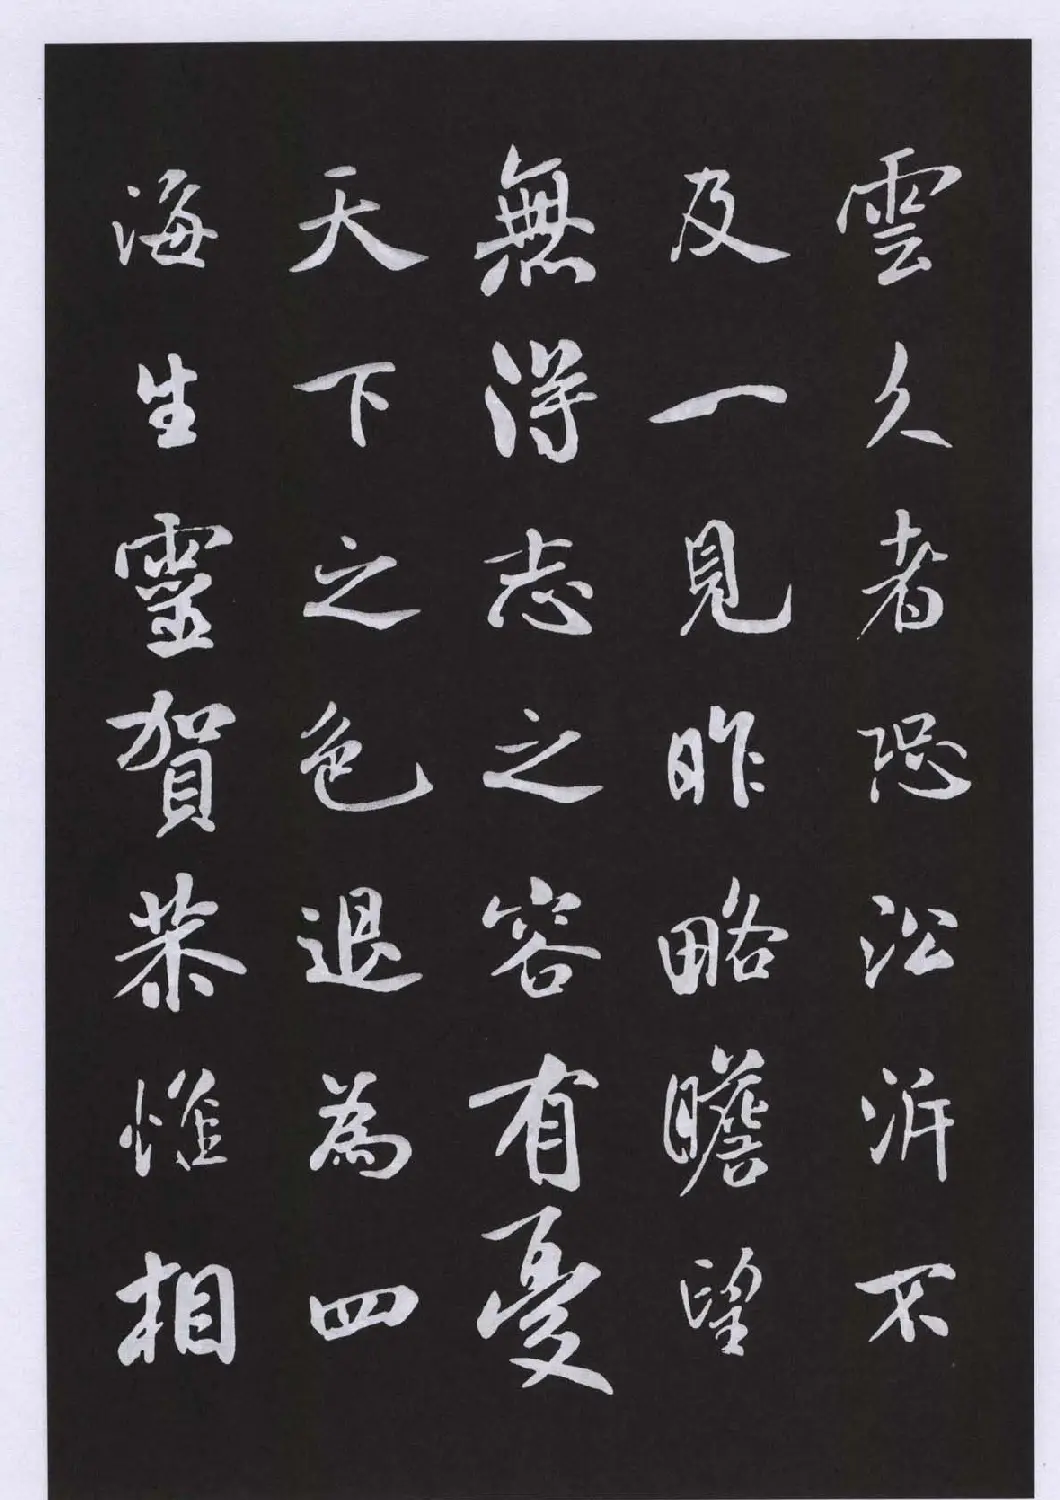 雲久者恐訟訴不
及一見昨略瞻望
無得志之容有憂
天下之色退為四
海生靈賀恭惟相